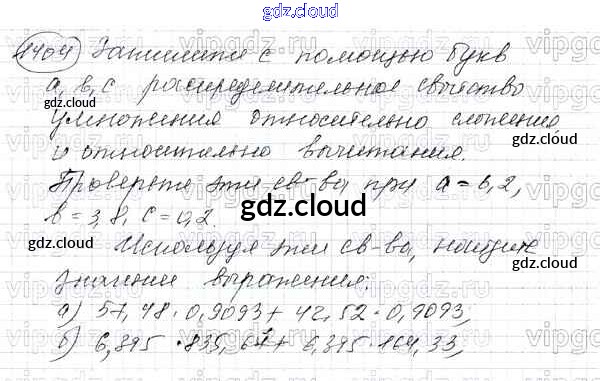 gdz.cloud
1404 Запишите с помощью букв
a, b, c распределительное свойство
gdz.cloud
умножения относительно сложения
gdz.cloud
и относительно вычитания.
Проверьте эти св-ва при a = 6,2,
gdz.cloud
b = 3,8, c = 0,2.
gdz.cloud
Используя эти св-ва, найдите
gdz.cloud
значение выражения:
а) 57,48 · 0,9093 + 42,52 · 0,9093;
gdz.cloud
б) 6,395 · 835,67 + 6,395 · 164,33;